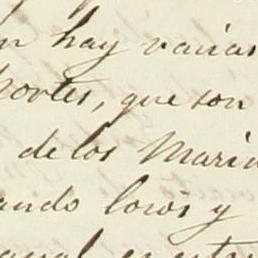 n hay varias
portes, que son
de los Marin
ando lows y